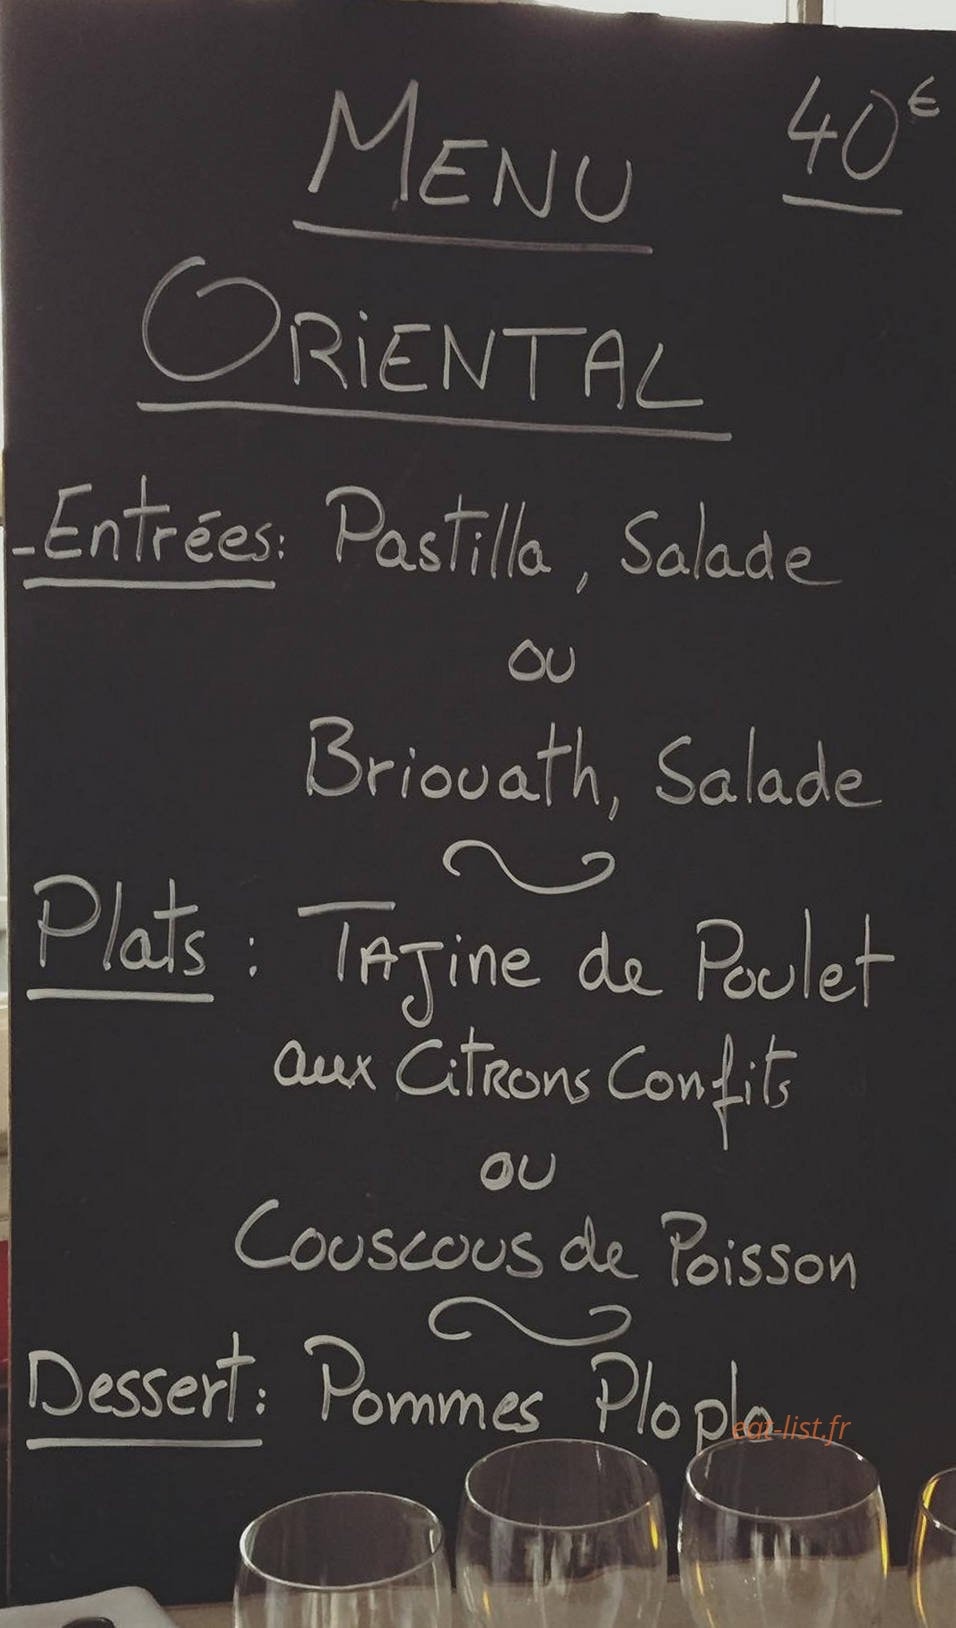 MENU 40€
ORiENTAL
- Entrées: Pastilla, Salade
ou
Briouath, Salade
Plats : TAJine de Poulet
aux CitRons Confits
ou
Couscous de Poisson
Dessert: Pommes Plopla
eat-list.fr